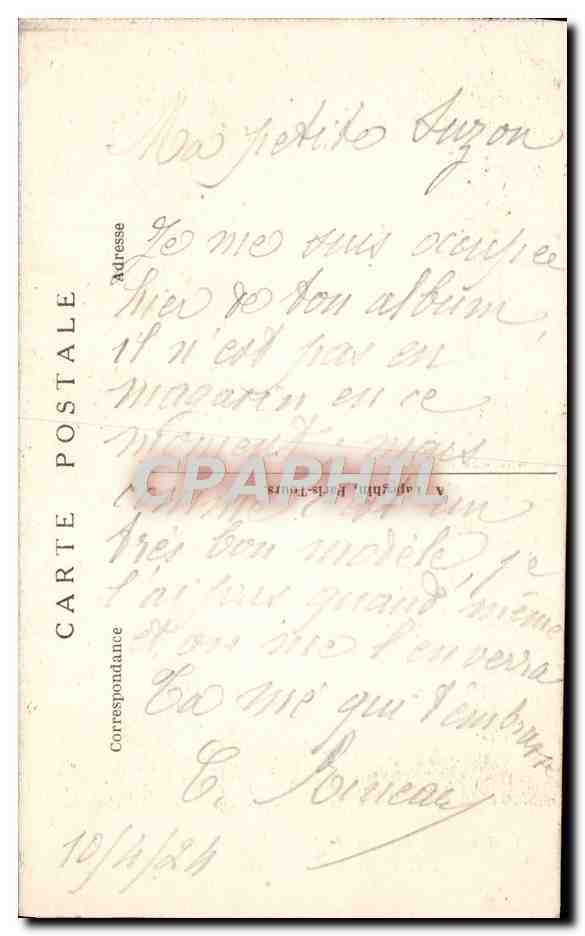 CARTE POSTALE
Adresse
Correspondance
A. Papeghin, Paris-Tours
CPARAMA
Ma petite Suzon
Je me suis occupée
hier de ton album,
il n'est pas en
magasin en ce
moment, mais
comme c'est un
très bon modèle, je
l'ai pris quand même
et on me l'enverra
Ta mé qui t'embrasse
10/4/24